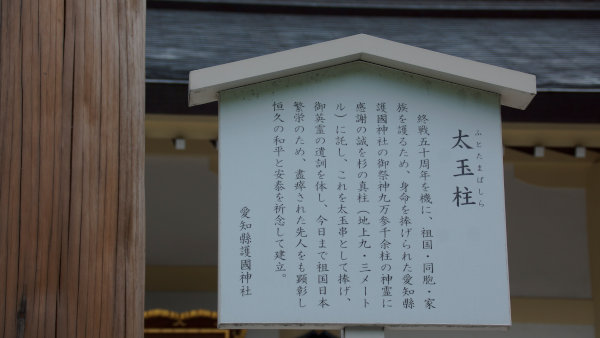 太玉柱
ふとたまばしら
終戦五十周年を機に、祖国・同胞・家
族を護るため、身命を捧げられた愛知縣
護國神社の御祭神九万参千余柱の神霊に
感謝の誠を杉の真柱（地上九・三メート
ル）に託し、これを太玉串として捧げ、
御英霊の遺訓を体し、今日まで祖国日本
繁栄のため、盡瘁された先人をも顕彰し
恒久の和平と安泰を祈念して建立。
愛知縣護國神社